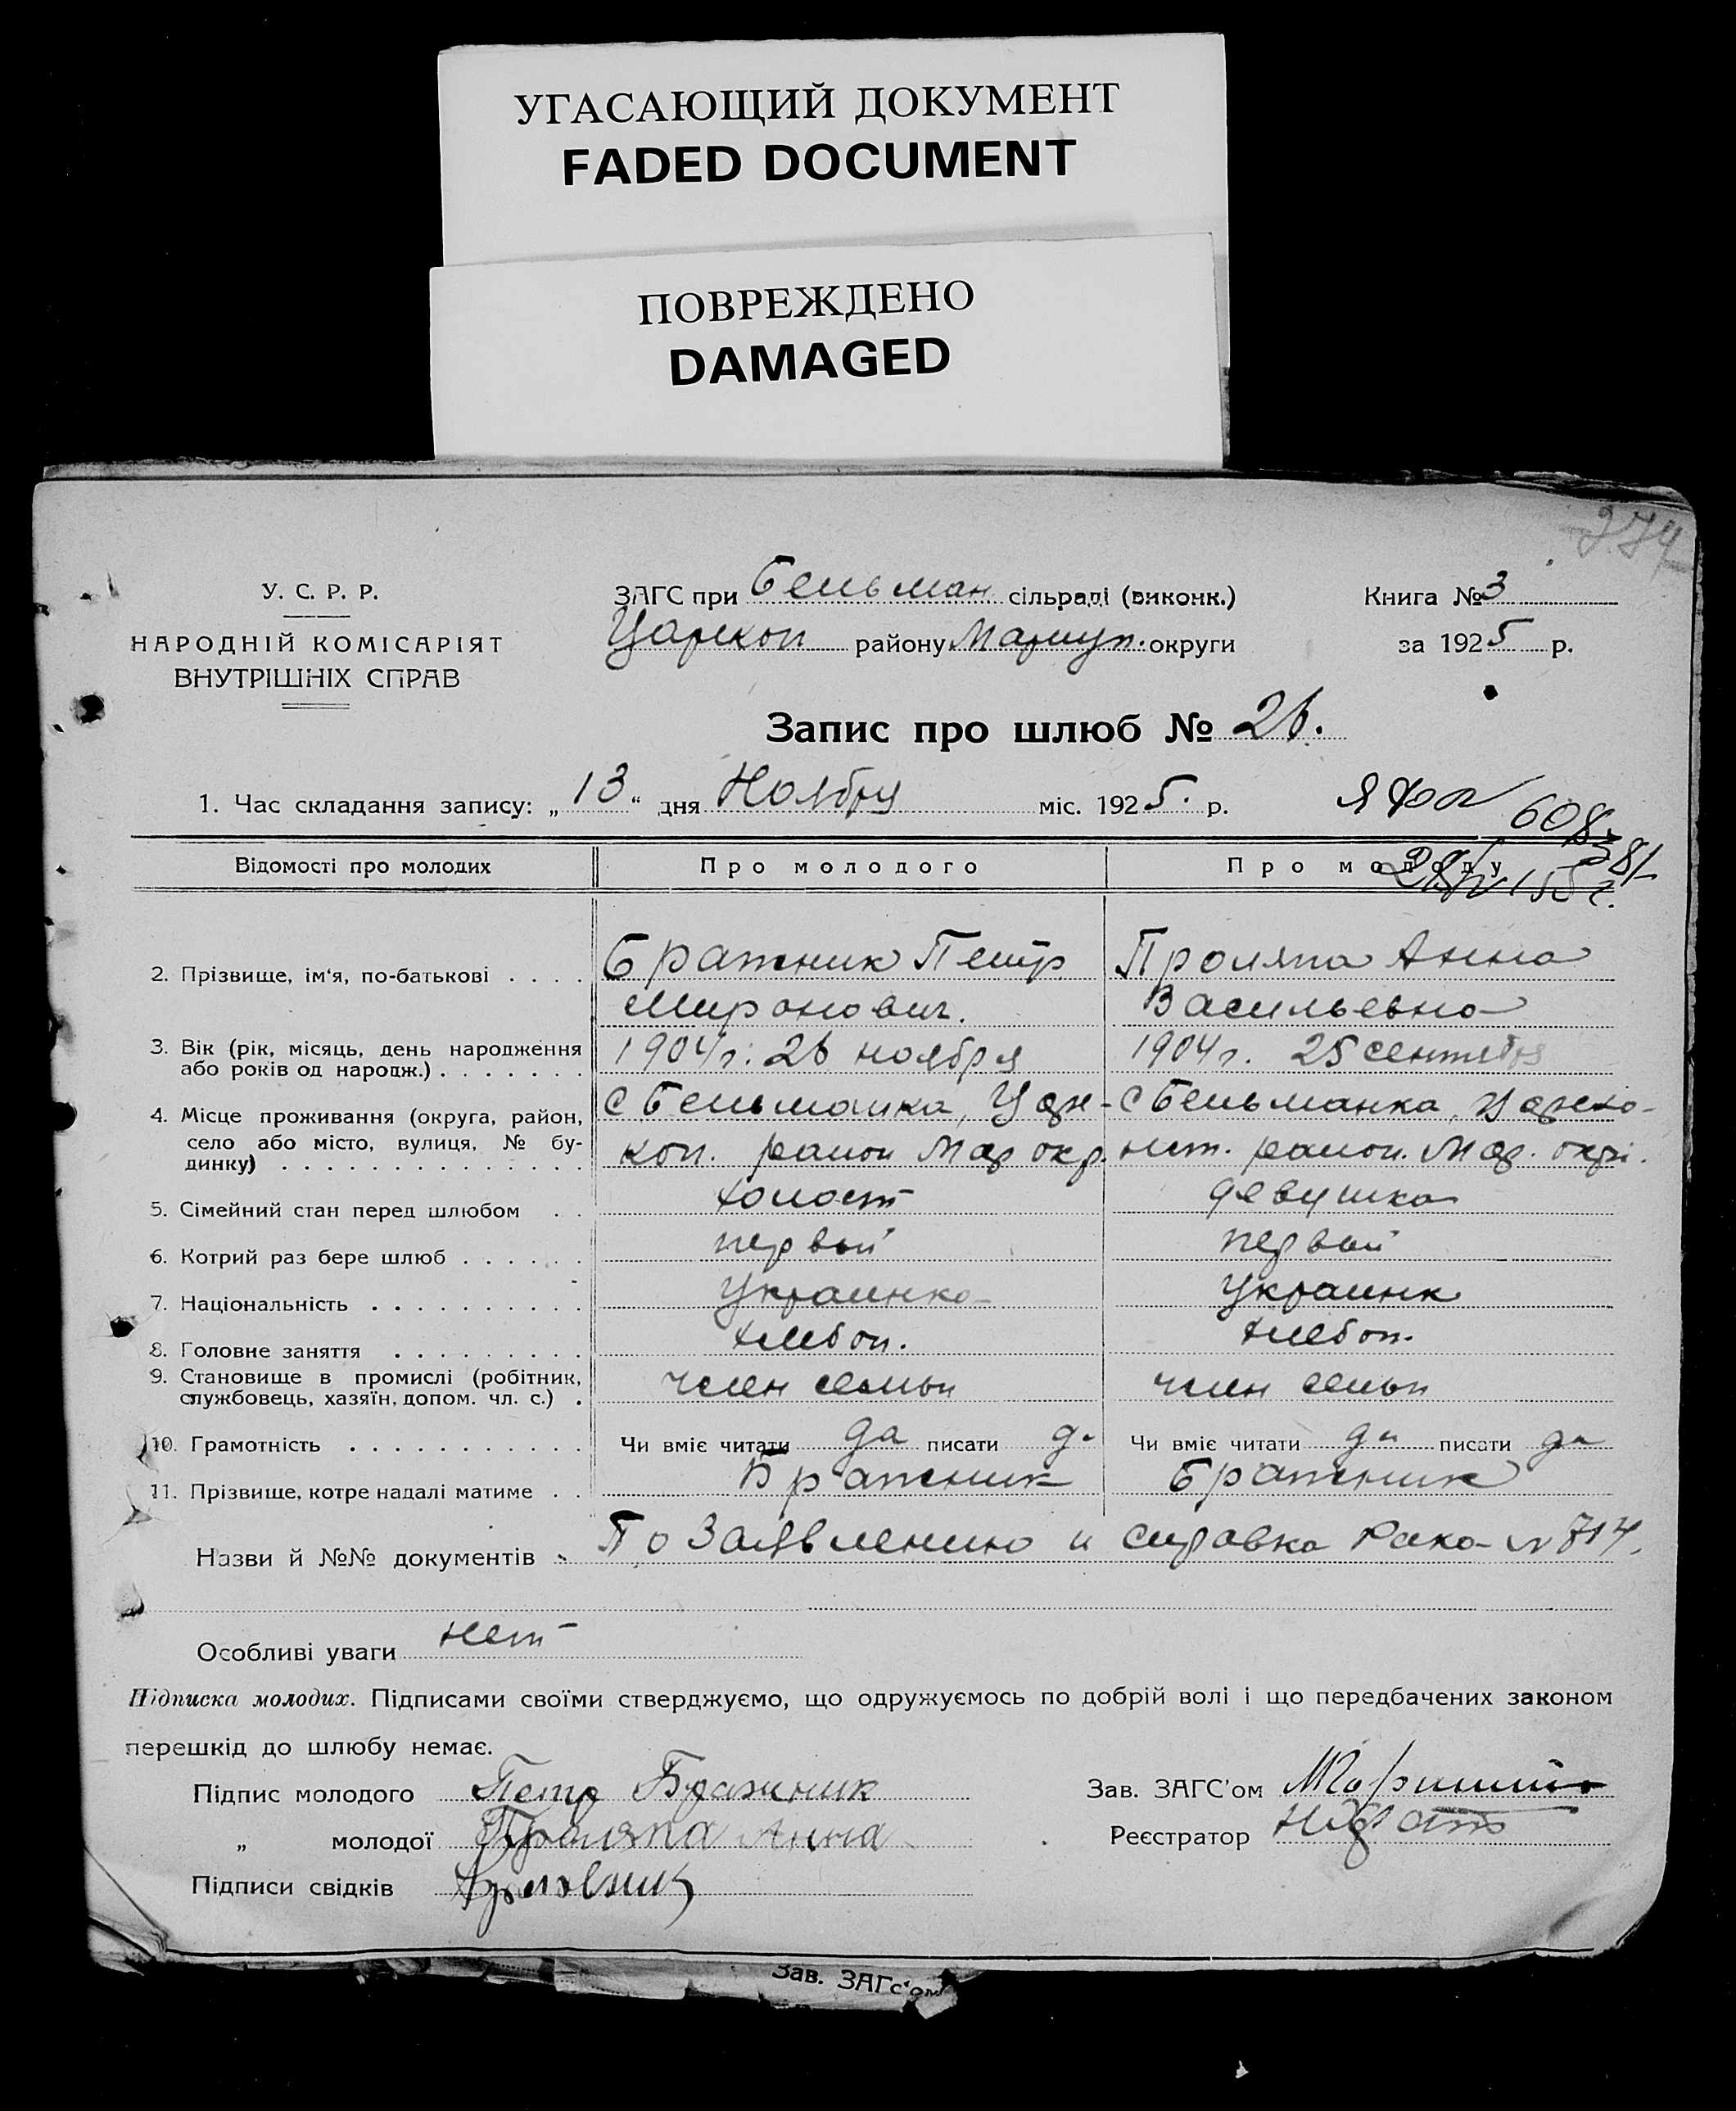 УГАСАЮЩИЙ ДОКУМЕНТ
FADED DOCUMENT
ПОВРЕЖДЕНО
DAMAGED
374
У. С. Р. Р.
НАРОДНІЙ КОМІСАРІЯТ
ВНУТРІШНІХ СПРАВ
ЗАГС при Бельман сільраді (виконк.)
Царекон району Мариуп. округи
Книга № 3
за 1925 р.
Запис про шлюб № 26.
1. Час складання запису: „13“ дня Ноября міс. 1925. р.
Відомості про молодих Про молодого Про молоду
2. Прізвище, ім'я, по-батькові . . . . Бражник Петр Мироно­вич. Проляпа Анна Васильевна
3. Вік (рік, місяць, день народження або років од народж.) . . . . . . . 1904 г. 26 ноября 1904 г. 25 сентября
4. Місце проживання (округа, район, село або місто, вулиця, № бу-
динку) . . . . . . . . . . . . . . С Бельманка, Царе-кон. район Мар окр. С Бельманка, Цареко-нст. район. Мар. окр.
5. Сімейний стан перед шлюбом . . холост девушка
6. Котрий раз бере шлюб . . . . . . первый первый
7. Національність . . . . . . . . . . Украинка Украинк
8. Головне заняття . . . . . . . . . хлебоп. хлебоп.
9. Становище в промислі (робітник, службовець, хазяїн, допом. чл. с.) . член семьи член семьи
10. Грамотність . . . . . . . . . . . Чи вміє читати да писати да Чи вміє читати да писати да
11. Прізвище, котре надалі матиме . . Бражник Бражник
Назви й №№ документів . По Заявлению и справка Рика № 714.
Особливі уваги нет
Підписка молодих. Підписами своїми стверджуємо, що одружуємось по добрій волі і що передбачених законом
перешкід до шлюбу немає.
Підпис молодого Петр Бражник
„ молодої Проляпа Анна
Підписи свідків
Зав. ЗАГС'ом
Реєстратор
Зав. ЗАГС'ом